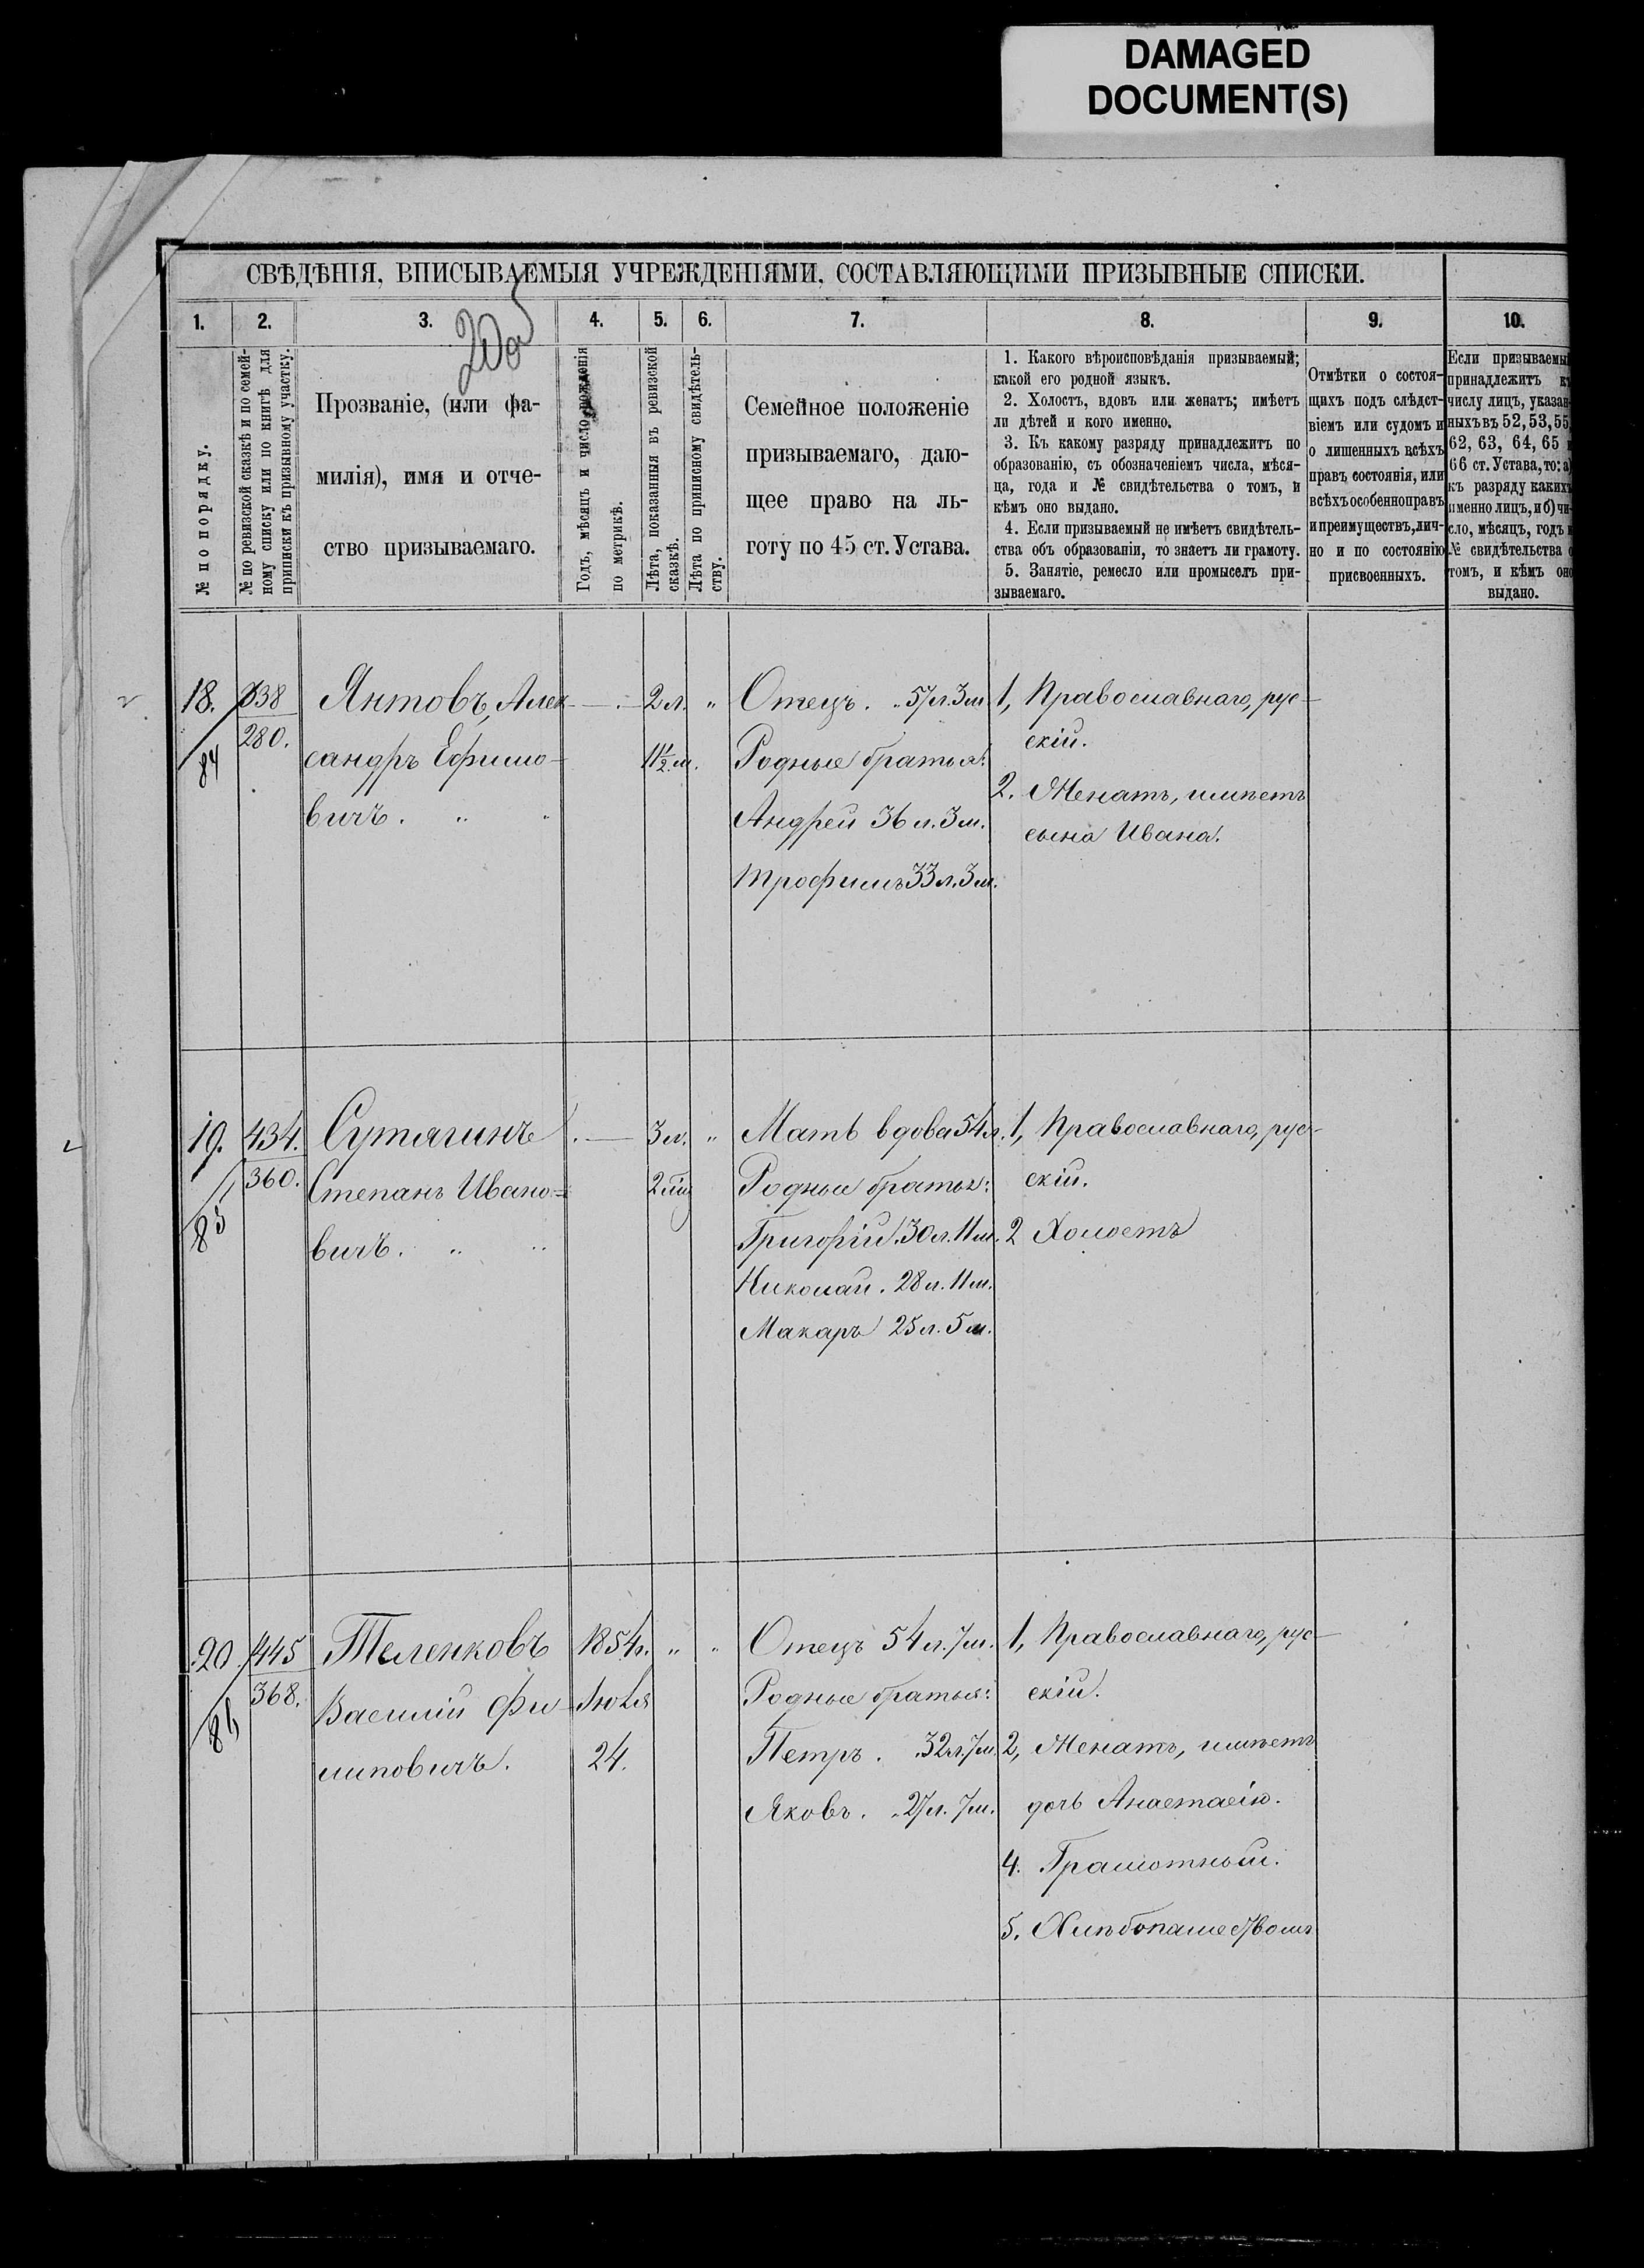 DAMAGED
DOCUMENT(S)
СВѢДѢНІЯ, ВПИСЫВАЕМЫЯ УЧРЕЖДЕНІЯМИ, СОСТАВЛЯЮЩИМИ ПРИЗЫВНЫЕ СПИСКИ.
1.
2.
3.
4.
5.
6.
7.
8.
9.
10.
№ по порядку.
№ по ревизской сказкѣ и по семей-
ному списку или по книгѣ для
приписки къ призывному участку.
Прозваніе, (или фа-
милія), имя и отче-
ство призываемаго.
Годъ, мѣсяцъ и число рожденія
по метрикѣ.
Лѣта, показанныя въ ревизской
сказкѣ.
Лѣта по приписному свидѣтель-
ству.
Семейное положеніе
призываемаго, даю-
щее право на ль-
готу по 45 ст. Устава.
1. Какого вѣроисповѣданія призываемый;
какой его родной языкъ.
2. Холостъ, вдовъ или женатъ; имѣетъ
ли дѣтей и кого именно.
3. Къ какому разряду принадлежитъ по
образованію, съ обозначеніемъ числа, мѣся-
ца, года и № свидѣтельства о томъ, и
кѣмъ оно выдано.
4. Если призываемый не имѣетъ свидѣтель-
ства объ образованіи, то знаетъ ли грамоту.
5. Занятіе, ремесло или промыселъ при-
зываемаго.
Отмѣтки о состоя-
щихъ подъ слѣдст-
віемъ или судомъ и
о лишенныхъ всѣхъ
правъ состоянія, или
всѣхъ особенно правъ
и преимуществъ, лич-
но и по состоянію
присвоенныхъ.
Если призываемы
принадлежитъ к
числу лицъ, указан-
ныхъ въ 52, 53, 55,
62, 63, 64, 65 и
66 ст. Устава, то: а)
къ разряду какихъ
именно лицъ, и б) чи-
сло, мѣсяцъ, годъ и
№ свидѣтельства о
томъ, и кѣмъ оно
выдано.
18.
84
338
280.
Янтовъ, Алек-
сандръ Ефимо-
вичъ. " "
2 л. "
11½ м.
Отецъ. " 57 л. 3 м.
Родные братья:
Андрей 36 л. 3 м.
Трофимъ 33 л. 3 м.
1, Православнаго, рус-
скій.
2. Женатъ, имѣетъ
сына Ивана.
19.
85
434.
360.
Сутягинъ
Степанъ Ивано=
вичъ. " "
3 л. "
Мать вдова 54 л.
Родные братья:
Григорій. 30 л. 11 м.
Николай. 28 л. 11 м.
Макаръ 25 л. 5 м.
1, Православнаго, рус-
скій.
2 Холостъ
20.
86
445
368.
Теленковъ
Василій Фи-
липовичъ.
1854 г. " "
Іюля
24.
Отецъ 54 л. 7 м.
Родные братья:
Петръ. " 32 л. 7 м.
Яковъ. " 27 л. 7 м.
1, Православнаго, рус-
скій.
2, Женатъ, имѣетъ
дочь Анастасію.
4. Грамотный.
5. Хлѣбопашествомъ